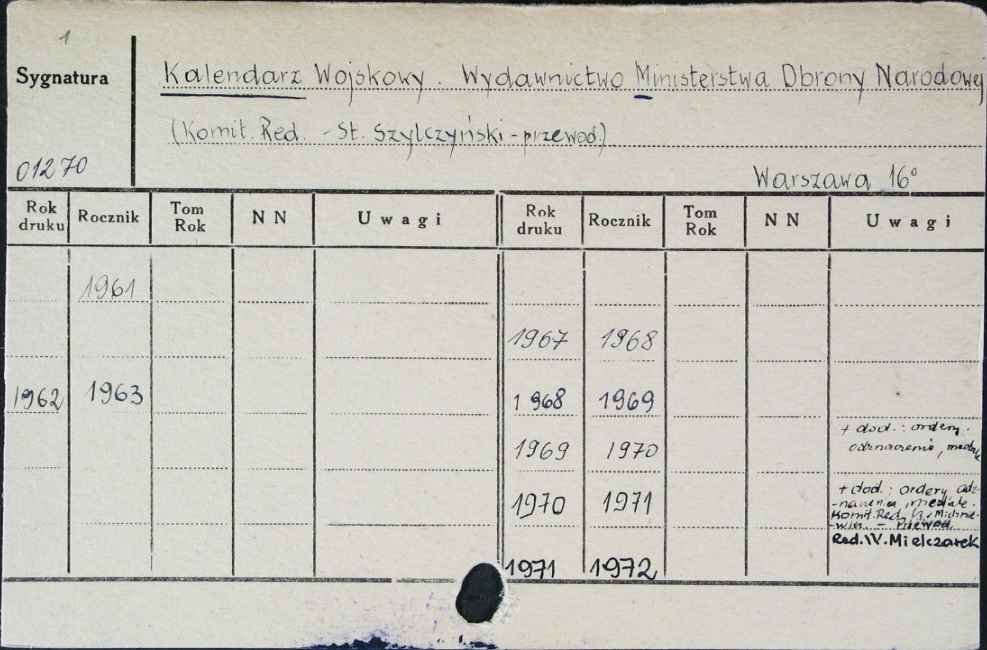 1
Sygnatura
Kalendarz Wojskowy. Wydawnictwo Ministerstwa Obrony Narodowej
(Komit. Red. - St. Szylczyński - przewod.)
01270
Warszawa 16°
Rok druku Rocznik Tom Rok N N Uwagi Rok druku Rocznik Tom Rok N N Uwagi
1961
1967 1968
1962 1963 1968 1969
1969 1970 + dod.: ordery.
odznaczenia, medale
1970 1971 + dod.: ordery odz-
-naczenia, medale.
Komit. Red.
- Przewod.
Red. W. Mielczarek
1971 1972